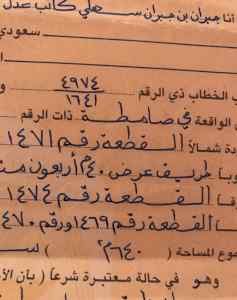 أنا جبران بن جبران سهلي كاتب عدل
سعودي
الخطاب ذي الرقم ٤٩٧٤
١٦٤١
الواقعة في صامطة ذات الرقم
شمالاً القطعة رقم ١٤٧١
طريق عرض ٤٠م أربعون
القطعة رقم ١٤٧٤
القطعة رقم ١٤٦٩ ورقم ٤٧٠
المساحة ( ٦٤٠م٢ )
وهو في حالة معتبرة شرعاً ( بأن